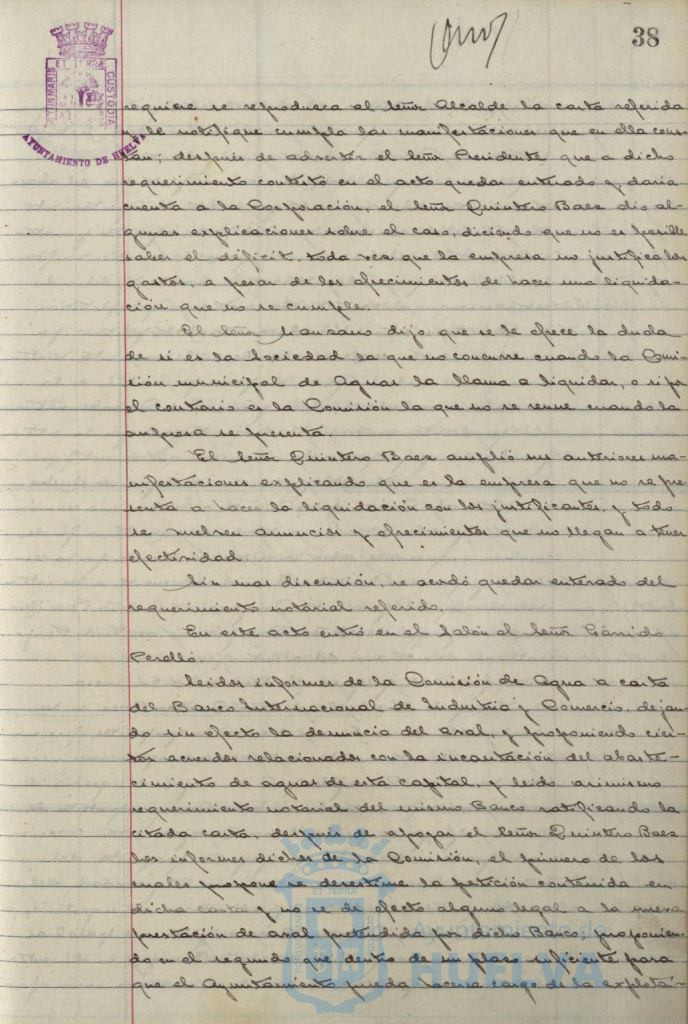 38
ET TERRÆ
CUSTODIA
AYUNTAMIENTO DE HUELVA
requiere se reproduzca al Señor Alcalde la carta referida
y le notifique cumpla las manifestaciones que en ella cons-
tan; después de advertir el Señor Presidente que a dicho
requerimiento contestó en el acto quedar enterado y daría
cuenta a la Corporación, el Señor Quintero Baez dio al-
gunas explicaciones sobre el caso, diciendo que no es posible
saber el déficit, toda vez que la empresa no justifica los
gastos, a pesar de los ofrecimientos de hacer una liquida-
ción que no se cumple.
El Señor Manzano dijo que se le ofrece la duda
de si es la Sociedad la que no concurre cuando la Comi-
sión municipal de Aguas la llama a liquidar, o si por
el contrario es la Comisión la que no se reune cuando la
empresa se presenta.
El Señor Quintero Baez amplió sus anteriores ma-
nifestaciones explicando que es la empresa que no se pre-
senta a hacer la liquidación con los justificantes, y todo
se vuelven anuncios y ofrecimientos que no llegan a tener
efectividad.
Sin mas discusión, se acordó quedar enterado del
requerimiento notarial referido.
En este acto entró en el Salón el Señor Garrido
Perelló.
Leidos informes de la Comisión de Agua a carta
del Banco Internacional de Industria y Comercio, dejan-
do sin efecto la denuncia del aval, y proponiendo cier-
tos acuerdos relacionados con la incautación del abaste-
cimiento de aguas de esta capital, y leido asimismo
requerimiento notarial del mismo Banco ratificando la
citada carta, después de apoyar el Señor Quintero Baez
los informes dichos de la Comisión, el primero de los
cuales propone se desestime la petición contenida en
dicha carta y no se dé efecto alguno legal a la nueva
prestación de aval pretendida por dicho Banco; proponien-
do en el segundo que dentro de un plazo suficiente para
que el Ayuntamiento pueda hacerse cargo de la explota-
Ayuntamiento de
HUELVA